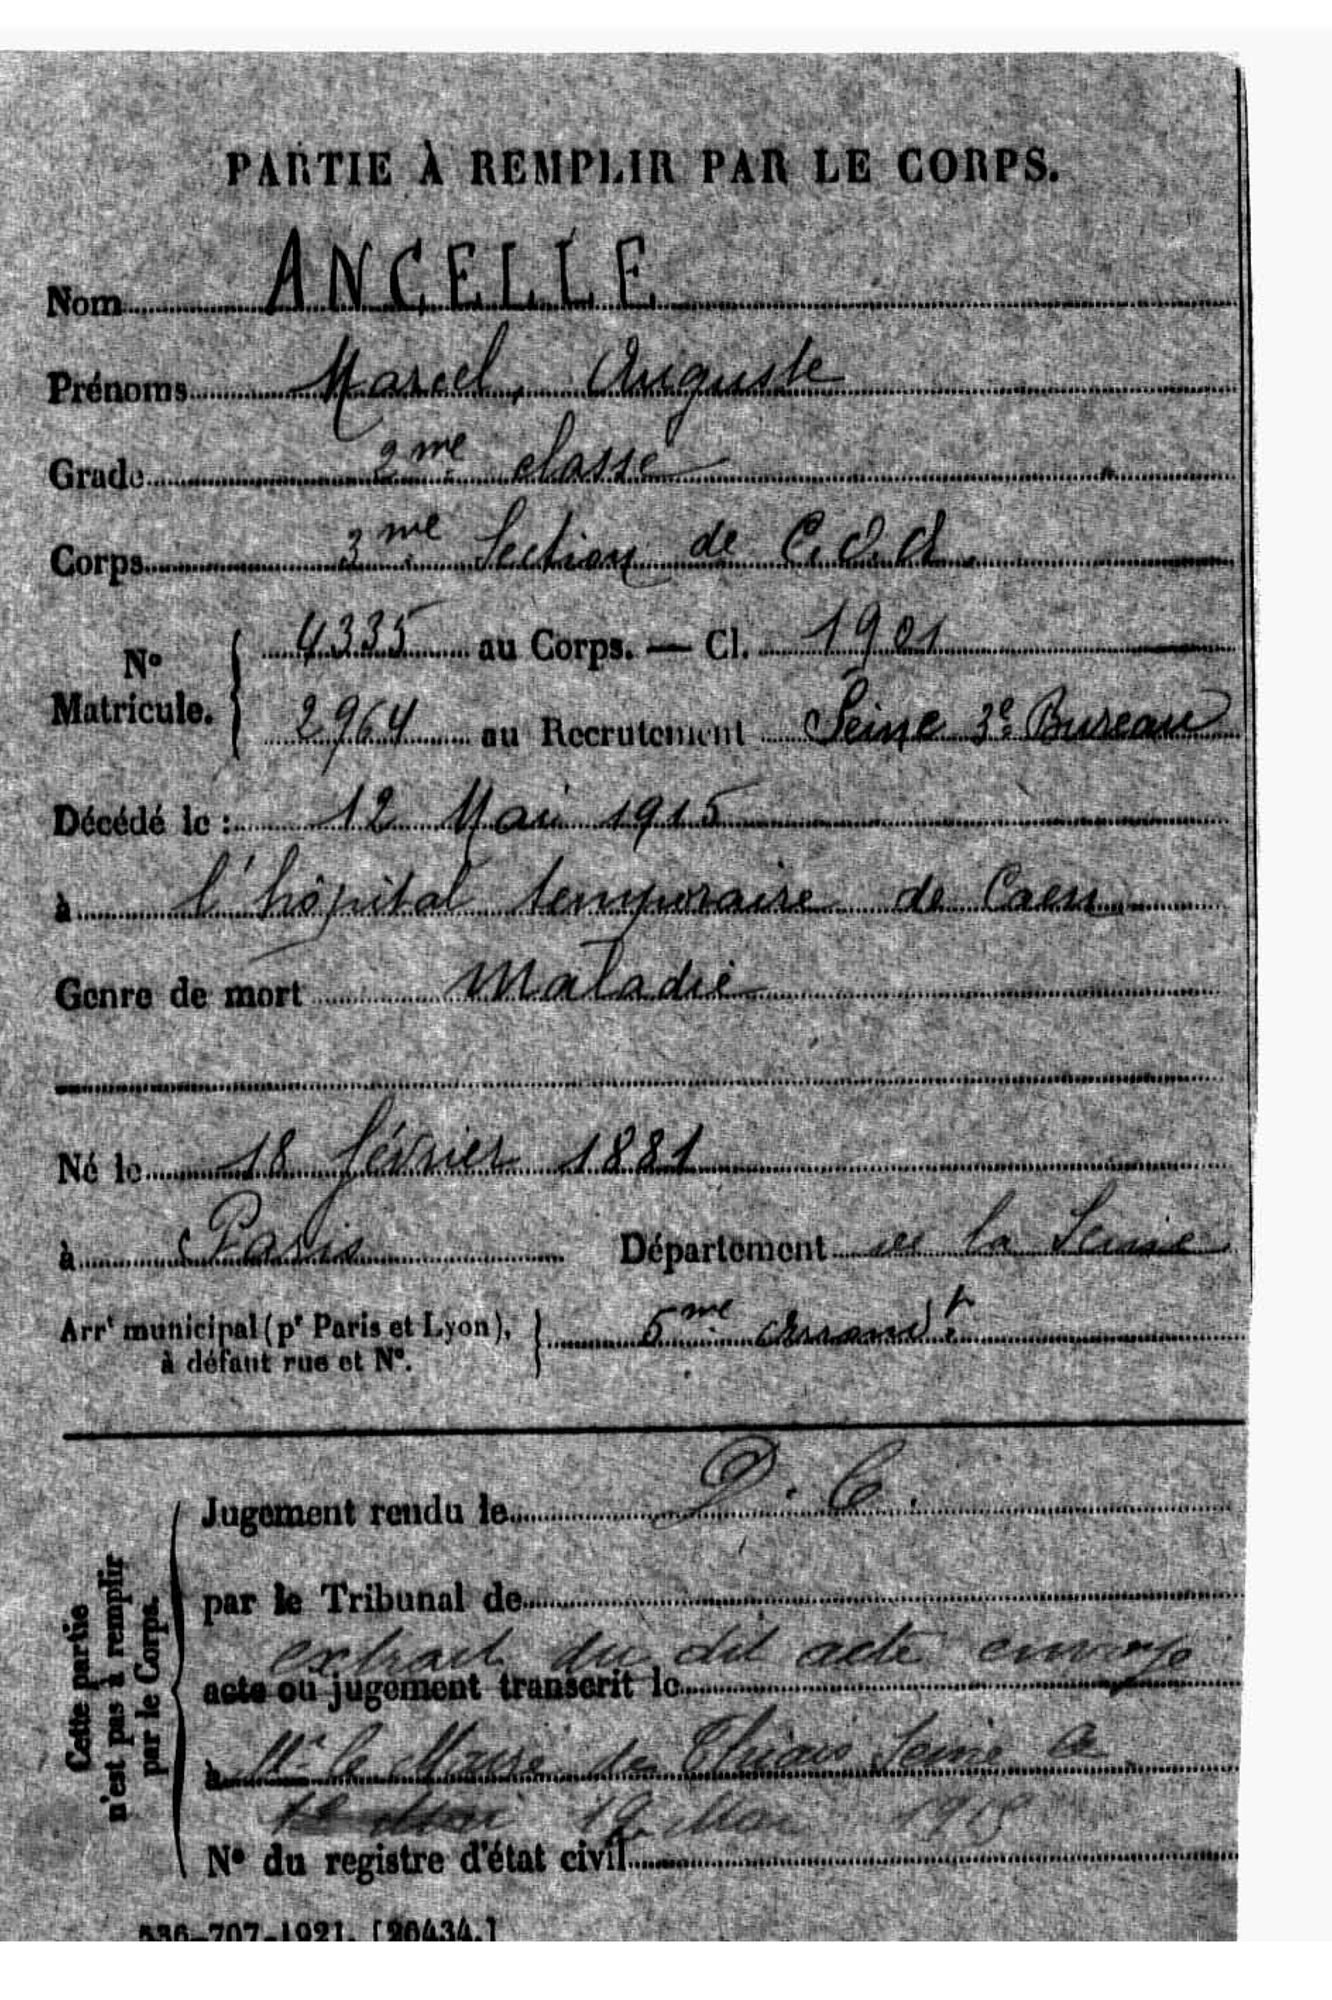 PARTIE À REMPLIR PAR LE CORPS.
Nom ANCELLE
Prénoms Marcel, Auguste
Grade 2me classe
Corps 3me Section de C.O.A.
No Matricule. { 4335 au Corps. — Cl. 1901
2964 au Recrutement Seine 3e Bureau
Décédé le : 12 Mai 1915
à l'hôpital temporaire de Caen
Genre de mort Maladie
Né le 18 février 1881
à Paris Département de la Seine
Arrt municipal (pr Paris et Lyon), à défaut rue et No. } 5me Arrondt
Cette partie n'est pas à remplir par le Corps.
Jugement rendu le D. C.
par le Tribunal de
extrait du dit acte envoyé
acte ou jugement transcrit le
à Mr le Maire de Thiais Seine le
12 Mai 1915
No du registre d'état civil
536-707-1921. [26434.]